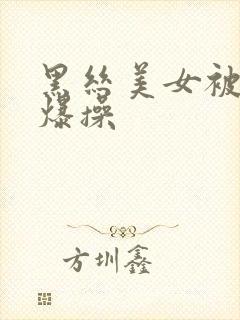 黑丝美女被
爆操
方圳鑫